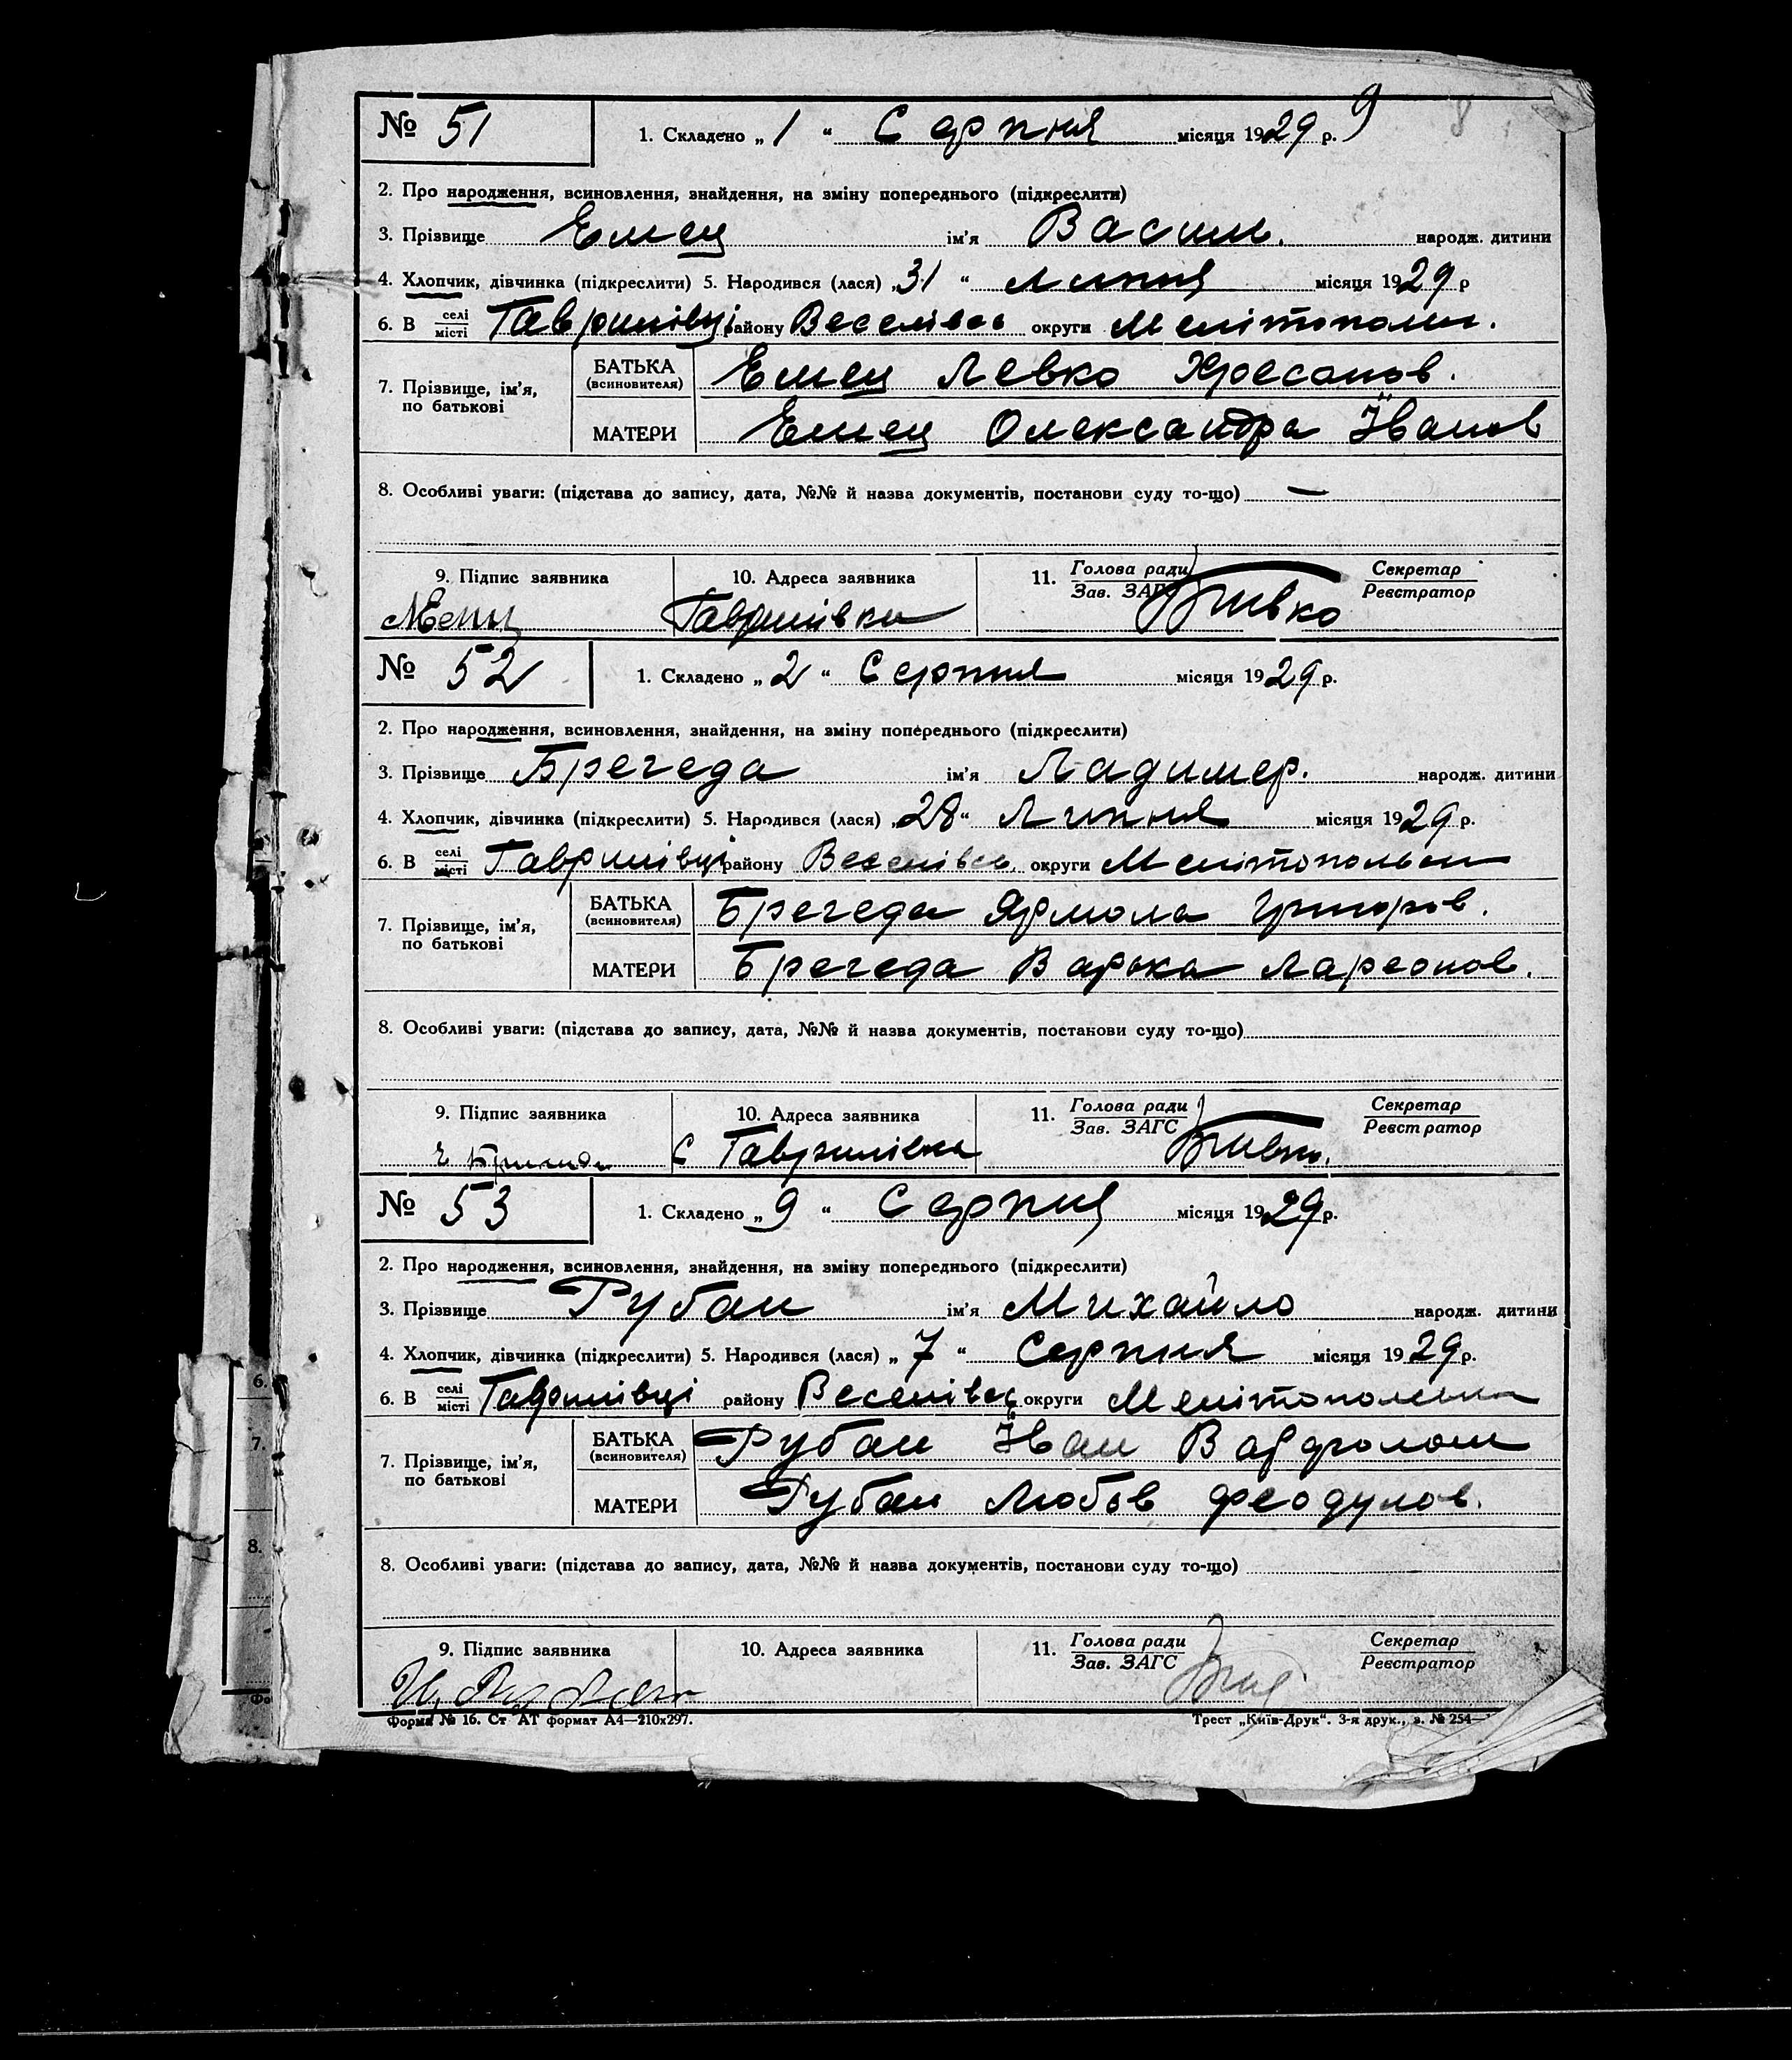 № 51 1. Складено „ 1 “ Серпня місяця 1929 р. 9 8
2. Про народження, всиновлення, знайдення, на зміну попереднього (підкреслити)
3. Прізвище Емец ім'я Васил. народж. дитини
4. Хлопчик, дівчинка (підкреслити) 5. Народився (лася) „31 “ Липня місяця 1929 р
6. В селі місті Гаврилівці району Веселівсь округи Мелітополь.
7. Прізвище, ім'я, по батькові БАТЬКА (всиновителя) Емец Левко Хресанов.
МАТЕРИ Емец Олександра Іванов
8. Особливі уваги: (підстава до запису, дата, №№ й назва документів, постанови суду то-що) —
9. Підпис заявника 10. Адреса заявника 11. Голова ради Зав. ЗАГС Секретар Реєстратор
Гаврилівка
№ 52 1. Складено „ 2 “ Серпня місяця 1929 р.
2. Про народження, всиновлення, знайдення, на зміну попереднього (підкреслити)
3. Прізвище Брегеда ім'я Ладимер. народж. дитини
4. Хлопчик, дівчинка (підкреслити) 5. Народився (лася) „28“ Липня місяця 1929 р.
6. В селі місті Гаврилівці району Веселівсь. округи Мелітопольськ
7. Прізвище, ім'я, по батькові БАТЬКА (всиновителя) Брегеда Ярмола Григоров.
МАТЕРИ Брегеда Варька Ларeонов.
8. Особливі уваги: (підстава до запису, дата, №№ й назва документів, постанови суду то-що)
9. Підпис заявника 10. Адреса заявника 11. Голова ради Зав. ЗАГС Секретар Реєстратор
с Гаврилівка
№ 53 1. Складено „ 9 “ Серпня місяця 1929 р.
2. Про народження, всиновлення, знайдення, на зміну попереднього (підкреслити)
3. Прізвище Рубан ім'я Михайло народж. дитини
4. Хлопчик, дівчинка (підкреслити) 5. Народився (лася) „ 7 “ Серпня місяця 1929 р.
6. В селі місті Гаврилівці району Веселівсь округи Мелітопольськ
7. Прізвище, ім'я, по батькові БАТЬКА (всиновителя) Рубан Іван Варфолом
МАТЕРИ Рубан Любов Феодулов.
8. Особливі уваги: (підстава до запису, дата, №№ й назва документів, постанови суду то-що)
9. Підпис заявника 10. Адреса заявника 11. Голова ради Зав. ЗАГС Секретар Реєстратор
И. Рубан
Форма № 16. Ст АТ формат А4—210x297. Трест „Київ-Друк“. 3-я друк., з. № 254—
6.
7.
8.